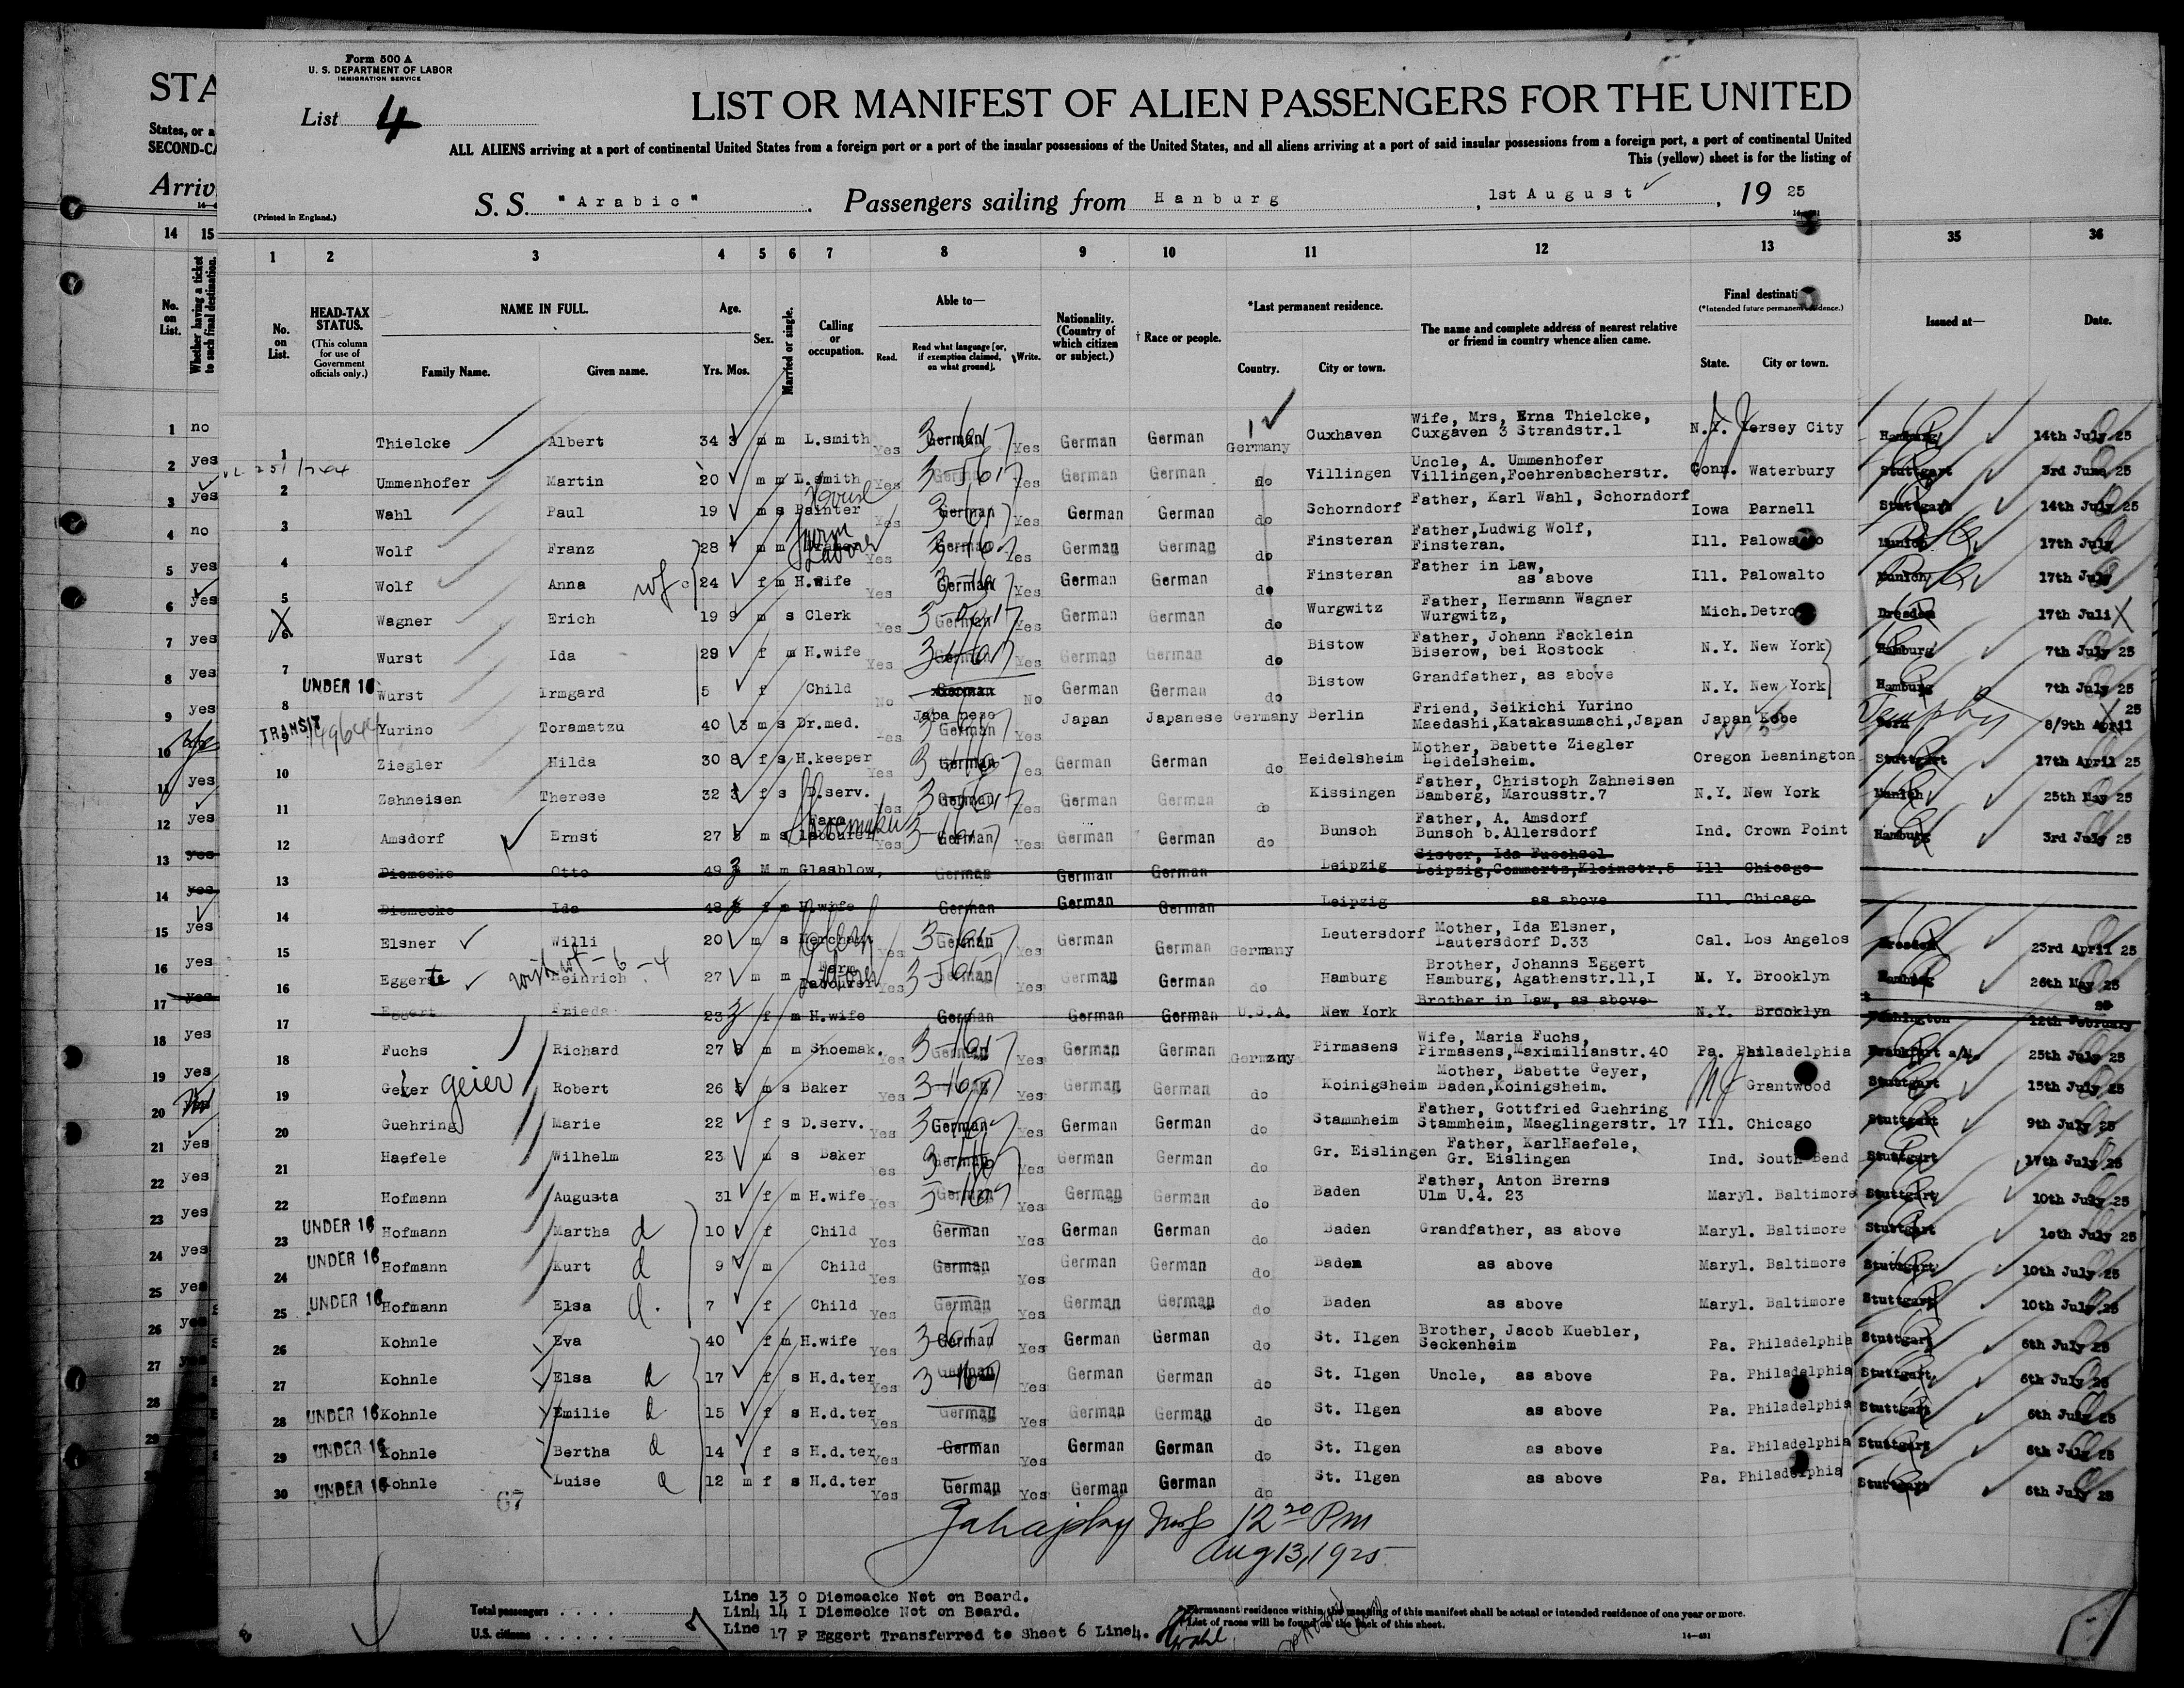 Form 500 A
U. S. DEPARTMENT OF LABOR
IMMIGRATION SERVICE
List 4
STA
LIST OR MANIFEST OF ALIEN PASSENGERS FOR THE UNITED
States, or a
SECOND-CA
ALL ALIENS arriving at a port of continental United States from a foreign port or a port of the insular possessions of the United States, and all aliens arriving at a port of said insular possessions from a foreign port, a port of continental United
This (yellow) sheet is for the listing of
Arriv
(Printed in England.)
S. S. "Arabic". Passengers sailing from Hanburg, 1st August, 19 25
14 15 1 2 3 4 5 6 7 8 9 10 11 12 13 35 36
No. on List. Whether having a ticket to such final destination. No. on List. HEAD-TAX STATUS. (This column for use of Government officials only.) NAME IN FULL. Family Name. Given name. Age. Yrs. Mos. Sex. Married or single. Calling or occupation. Able to— Read. Read what language [or, if exemption claimed, on what ground]. Write. Nationality. (Country of which citizen or subject.) † Race or people. *Last permanent residence. Country. City or town. The name and complete address of nearest relative or friend in country whence alien came. Final destinati (*Intended future permanent residence.) State. City or town. Issued at— Date.
1 no 1 Thielcke Albert 34 3 m m L.smith Yes German Yes German German Germany Cuxhaven Wife, Mrs, Erna Thielcke, Cuxgaven 3 Strandstr.1 N.J. Jersey City Hamburg 14th July 25
2 yes 2 Ummenhofer Martin 20 m m L.smith Yes German Yes German German do Villingen Uncle, A. Ummenhofer Villingen,Foehrenbacherstr. Conn. Waterbury Stuttgart 3rd June 25
3 yes 3 Wahl Paul 19 m s House Painter Yes German Yes German German do Schorndorf Father, Karl Wahl, Schorndorf Iowa Parnell Stuttgart 14th July 25
4 no 4 Wolf Franz 28 m m Farm Labourer Yes German Yes German German do Finsteran Father,Ludwig Wolf, Finsteran. Ill. Palowalto Munich 17th July
5 yes 5 Wolf Anna wf 24 f m H.wife Yes German Yes German German do Finsteran Father in Law, as above Ill. Palowalto Munich 17th July
6 yes X 6 Wagner Erich 19 9 m s Clerk Yes German Yes German German do Wurgwitz Father, Hermann Wagner Wurgwitz, Mich. Detro Dresden 17th Juli X
7 yes 7 Wurst Ida 29 f m H.wife Yes German Yes German German do Bistow Father, Johann Facklein Biserow, bei Rostock N.Y. New York Hamburg 7th July 25
8 yes 8 UNDER 16 Wurst Irmgard 5 f Child No German No German German do Bistow Grandfather, as above N.Y. New York Hamburg 7th July 25
9 yes 9 TRANSIT Yurino Toramatzu 40 3 m s Dr.med. Yes Japanese German Yes Japan Japanese Germany Berlin Friend, Seikichi Yurino Maedashi,Katakasumachi,Japan Japan Kobe Bern 8/9th April 25
10 10 Ziegler Hilda 30 8 f s H.keeper Yes German Yes German German do Heidelsheim Mother, Babette Ziegler Heidelsheim. Oregon Leanington Stuttgart 17th April 25
11 yes 11 Zahneisen Therese 32 3 f s D.serv. Yes German Yes German German do Kissingen Father, Christoph Zahneisen Bamberg, Marcusstr.7 N.Y. New York Munich 25th May 25
12 yes 12 Amsdorf Ernst 27 5 m s Farm labourer Shoemaker Yes German Yes German German do Bunsoh Father, A. Amsdorf Bunsoh b.Allersdorf Ind. Crown Point Hamburg 3rd July 25
13 yes 13 Diemecke Otto 49 3 M m Glasblow, German German German Leipzig Sister, Ida Fuechsel Leipzig,Commerts,Kleinstr.5 Ill Chicago
14 yes 14 Diemecke Ida 48 f m H.wife German German German Leipzig as above Ill. Chicago
15 yes 15 Elsner Willi 20 m s Merchant Clerk Yes German Yes German German Germany Leutersdorf Mother, Ida Elsner, Lautersdorf D.33 Cal. Los Angelos Dresden 23rd April 25
16 yes 16 Eggert with wf-6-4 Heinrich 27 m m Farm Labourer Yes German Yes German German do Hamburg Brother, Johanns Eggert Hamburg, Agathenstr.11,I N. Y. Brooklyn Hamburg 26th May 25
17 yes 17 Eggert Frieda 23 f m H.wife German German German U.S.A. New York Brother in Law, as above N.Y. Brooklyn Washington 12th February 25
18 yes 18 Fuchs Richard 27 m m Shoemak. Yes German Yes German German Germany Pirmasens Wife, Maria Fuchs, Pirmasens,Maximilianstr.40 Pa. Philadelphia Frankfurt a/M. 25th July 25
19 yes 19 Geier Robert 26 m s Baker Yes German Yes German German do Koinigsheim Mother, Babette Geyer, Baden,Koinigsheim. NJ Grantwood Stuttgart 15th July 25
20 20 Guehring Marie 22 f s D.serv. Yes German Yes German German do Stammheim Father, Gottfried Guehring Stammheim, Maeglingerstr. 17 Ill. Chicago Stuttgart 9th July 25
21 yes 21 Haefele Wilhelm 23 m s Baker Yes German Yes German German do Gr. Eislingen Father, KarlHaefele, Gr. Eislingen Ind. South Bend Stuttgart 17th July 25
22 yes 22 Hofmann Augusta 31 f m H.wife Yes German Yes German German do Baden Father, Anton Brerns Ulm U.4. 23 Maryl. Baltimore Stuttgart 10th July 25
23 yes 23 UNDER 16 Hofmann Martha d 10 f Child Yes German Yes German German do Baden Grandfather, as above Maryl. Baltimore Stuttgart 10th July 25
24 yes 24 UNDER 16 Hofmann Kurt d 9 m Child Yes German Yes German German do Baden as above Maryl. Baltimore Stuttgart 10th July 25
25 yes 25 UNDER 16 Hofmann Elsa d. 7 f Child Yes German Yes German German do Baden as above Maryl. Baltimore Stuttgart 10th July 25
26 yes 26 Kohnle Eva 40 f m H.wife Yes German Yes German German do St. Ilgen Brother, Jacob Kuebler, Seckenheim Pa. Philadelphia Stuttgart 6th July 25
27 yes 27 Kohnle Elsa d 17 f s H.d.ter Yes German Yes German German do St. Ilgen Uncle, as above Pa. Philadelphia Stuttgart 6th July 25
28 28 UNDER 16 Kohnle Emilie d 15 f s H.d.ter Yes German Yes German German do St. Ilgen as above Pa. Philadelphia Stuttgart 6th July 25
29 29 UNDER 16 Kohnle Bertha d 14 f s H.d.ter Yes German Yes German German do St. Ilgen as above Pa. Philadelphia Stuttgart 6th July 25
30 UNDER 16 Kohnle Luise d 12 m f s H.d.ter Yes German Yes German German do St. Ilgen as above Pa. Philadelphia Stuttgart 6th July 25
67
12 20 P.m
Aug 13, 1925
Line 13 O Diemoacke Not on Board.
Total passengers Lin4 14 I Diemocke Not on Board.
U.S. citizens Line 17 F Eggert Transferred to Sheet 6 Line4.
*Permanent residence within the meaning of this manifest shall be actual or intended residence of one year or more.
† List of races will be found on the back of this sheet.